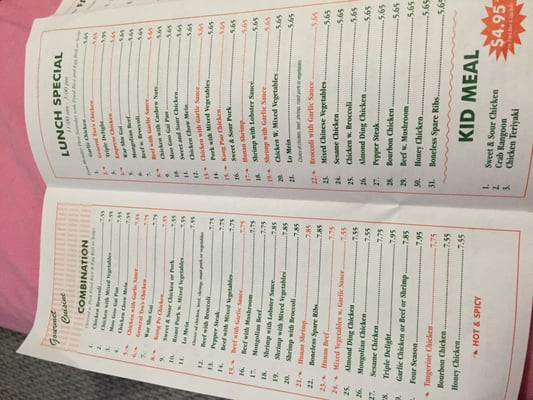 LUNCH SPECIAL
1. Garlic Chicken 5.65
2. General Tso's Chicken 5.65
3. Triple Delight 5.95
4. Pepper Chicken 5.65
5. War Shu Gai 5.65
6. Mongolian Beef 5.65
7. Beef w. Broccoli 5.65
8. Beef with Garlic Sauce 5.65
9. Chicken with Cashew Nuts 5.65
10. Moo Goo Gai Pan 5.65
11. Sweet and Sour Chicken 5.65
12. Chicken Chow Mein 5.65
13. Chicken with Garlic Sauce 5.65
14. Pork with Mixed Vegetables 5.65
15. Kung Pao Chicken 5.65
16. Sweet & Sour Pork 5.65
17. Hunan Shrimp 5.65
18. Shrimp with Lobster Sauce 5.65
19. Shrimp with Garlic Sauce 5.65
20. Chicken W. Mixed Vegetables 5.65
21. Lo Mein 5.65
22. Broccoli with Garlic Sauce 5.65
23. Mixed Chinese Vegetables 5.65
24. Sesame Chicken 5.65
25. Chicken w. Broccoli 5.65
26. Almond Ding Chicken 5.65
27. Pepper Steak 5.65
28. Bourbon Chicken 5.65
29. Beef w. Mushroom 5.65
30. Honey Chicken 5.65
31. Boneless Spare Ribs 5.65
KID MEAL
$4.95
1. Sweet & Sour Chicken
2. Crab Rangoon
3. Chicken Teriyaki
Gourmet
Cuisine
COMBINATION
1. Chicken Broccoli 7.55
2. Chicken with Mixed Vegetables 7.55
3. Moo Goo Gai Pan 7.55
4. Chicken Chow Mein 7.55
5. Chicken with Garlic Sauce 7.55
6. General Tso's Chicken 7.75
7. War Shu Gai 7.55
8. Kung Po Chicken 7.55
9. Sweet & Sour Chicken or Pork 7.55
10. Roast Pork w. Mixed vegetables 7.55
11. Lo Mein 7.55
12. Beef with Broccoli 7.75
13. Pepper Steak 7.75
14. Beef with Mixed Vegetables 7.75
15. Beef with Garlic Sauce 7.75
16. Beef with Mushroom 7.75
17. Mongolian Beef 7.75
18. Shrimp with Lobster Sauce 7.85
19. Shrimp with Mixed Vegetables 7.85
20. Shrimp with Broccoli 7.85
21. Hunan Shrimp 7.85
22. Boneless Spare Ribs 7.85
23. Hunan Beef 7.75
24. Mixed Vegetables w. Garlic Sauce 7.55
25. Almond Ding Chicken 7.55
26. Mongolian Chicken 7.55
27. Sesame Chicken 7.75
28. Triple Delight 7.95
29. Garlic Chicken or Beef or Shrimp 7.85
Four Season 7.95
Tangerine Chicken 7.75
Bourbon Chicken 7.55
Honey Chicken 7.55
HOT & SPICY